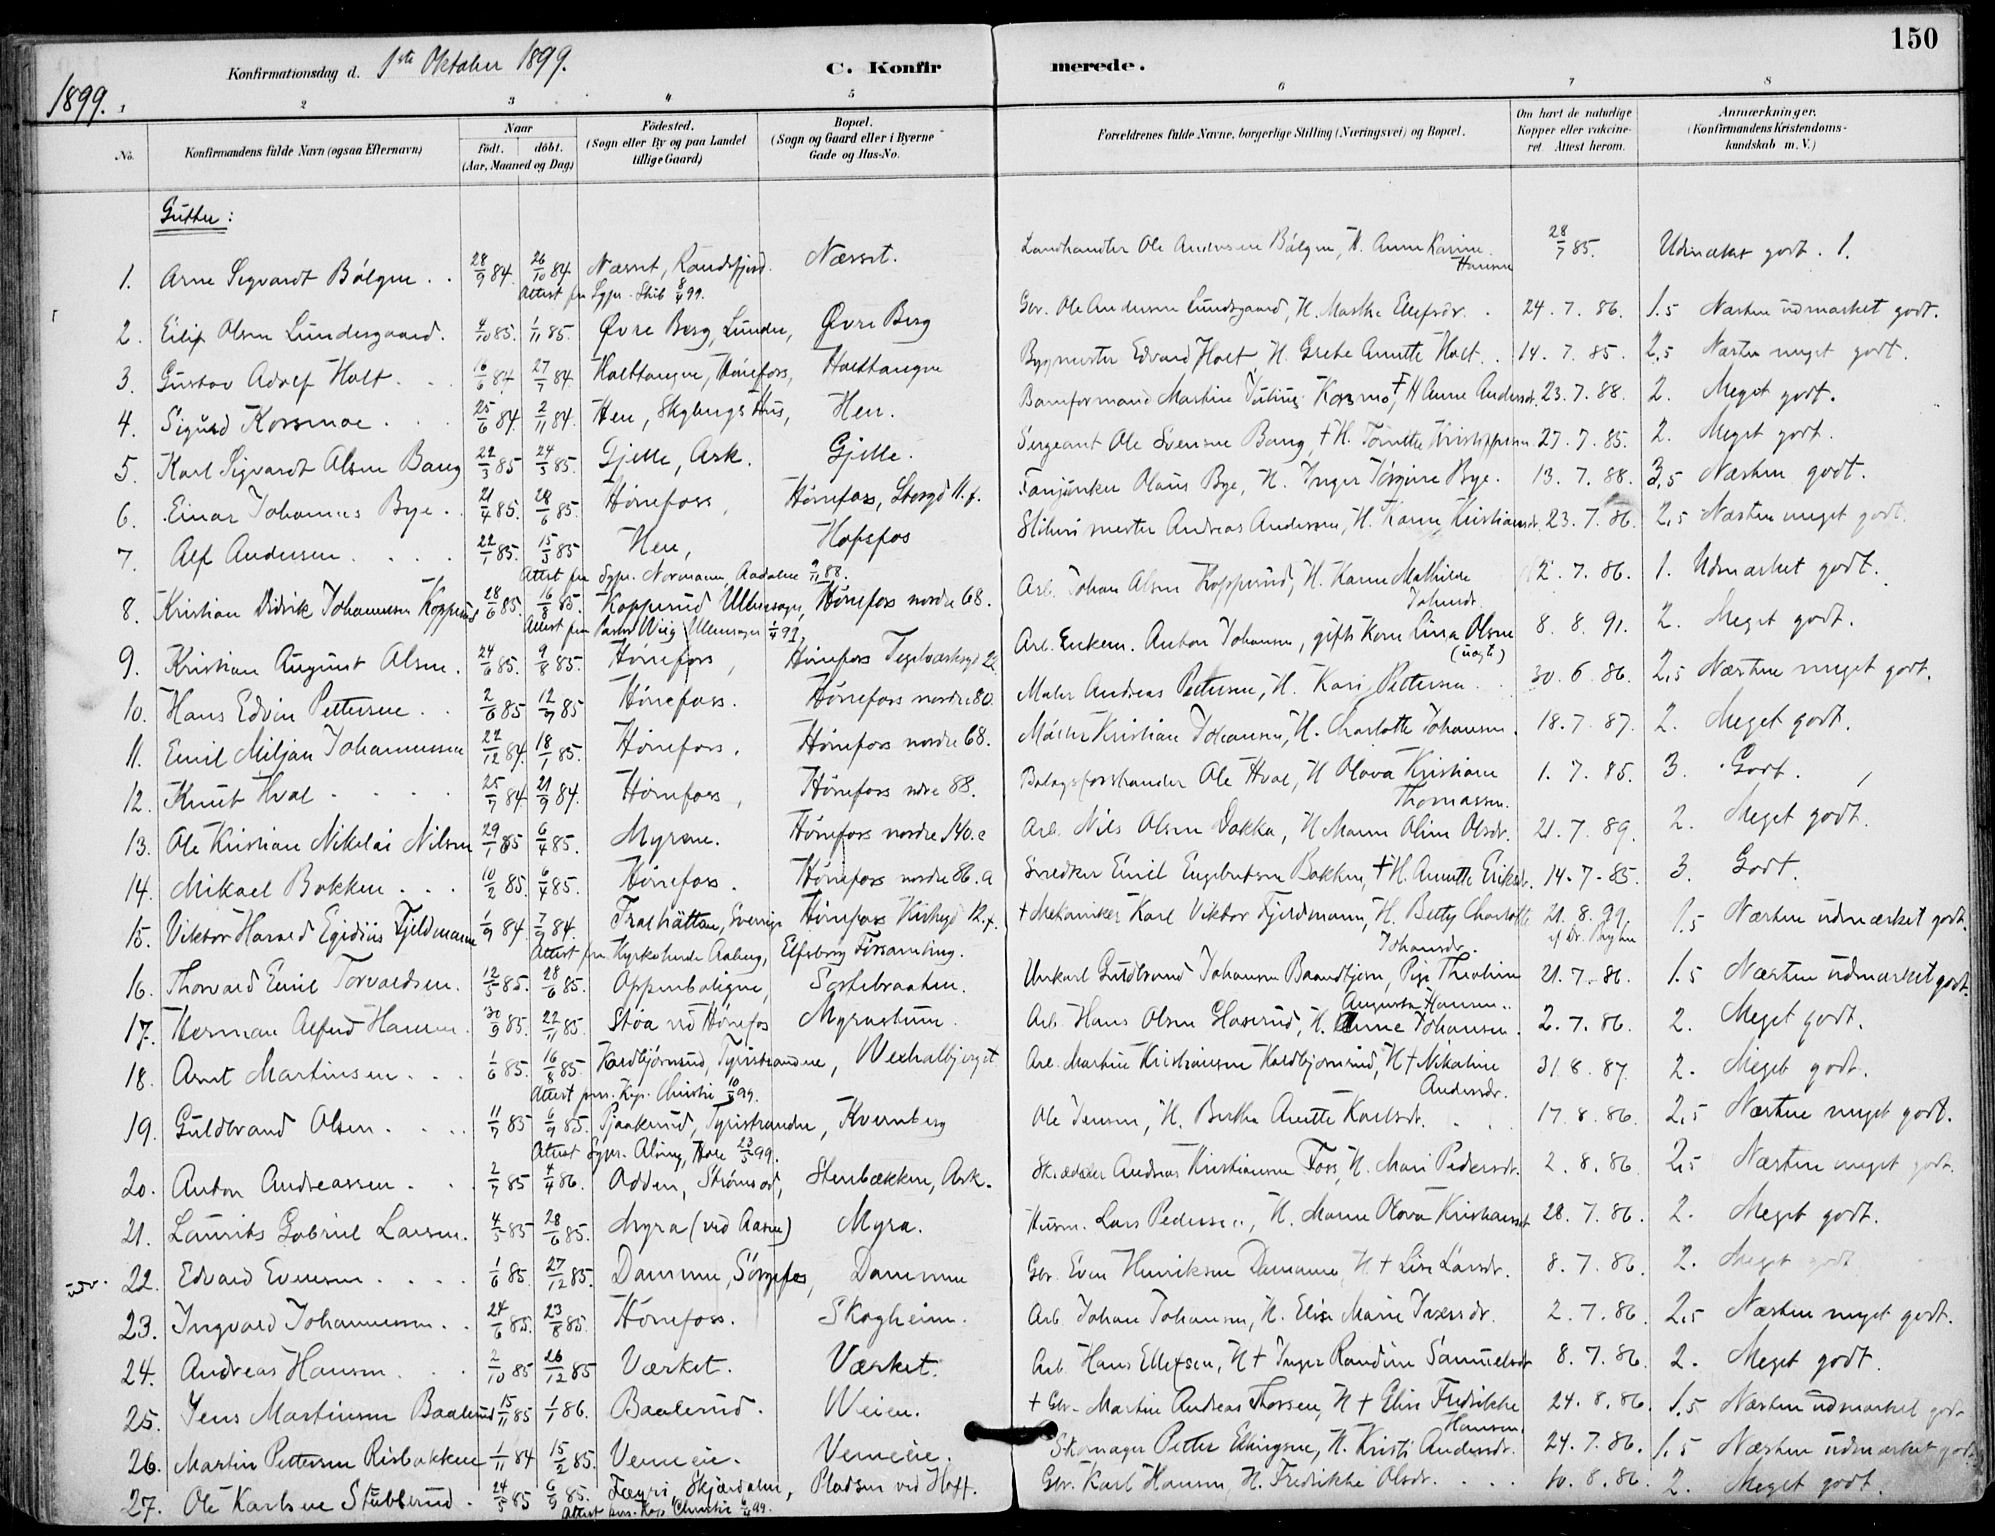 150
1899.
Konfirmationsdag d. 1ste Oktober 1899.
C. Konfirmerede.
1 2 3 4 5 6 7 8
No.
Konfirmandens fulde Navn (ogsaa Efternavn)
Naar
født. døbt.
(Aar, Maaned og Dag)
Fødested.
(Sogn eller By og paa Landet
tillige Gaard)
Bopæl.
(Sogn og Gaard eller i Byerne
Gade og Hus-No.
Forældrenes fulde Navne, borgerlige Stilling (Næringsvei) og Bopæl.
Om havt de naturlige
Kopper eller vakcine-
ret. Attest herom.
Anmærkninger.
(Konfirmandens Kristendoms-
kundskab m. V.)
Gutter:
1. Arne Sigvardt Bølgen . . 28/9 84. 26/10 84. Næsset, Randsfjord. Næsset. Landhandler Ole Andersen Bølgen, H. Anne Karine Hansen 28/7 85. Udmærket godt. 1.
Attest fra Sgpr. 8/4 99.
2. Eilif Olsen Lundesgaard. 4/10 85. 1/11 85. Øvre Berg, Lunder, Øvre Berg Gbr. Ole Andersen Lundesgaard, H. Marthe Ellefsdr. . 24.7.86. 1.5 Næsten udmærket godt.
3. Gustav Adolf Holt. . 16/6 84. 27/7 84 Holttangen, Hønefoss, Holttangen Bygmester Edvard Holt, H. Grethe Anette Holt. . 14.7.85. 2,5 Næsten meget godt.
4. Sigurd Korsmoe . . . 25/6 84. 2/11 84. Hen, Skybergs Hus, Hen. Bomformand Martin Julius Korsmo, † H Anne Andersdt. 23.7.88. 2. Meget godt.
5. Karl Sigvardt Olsen Bang 22/3 85 24/5 85. Gjelle, Ask. Gjelle. Sergeant Ole Svensen Bang, † H. Kristoffersen 27.7.85. 2. Meget godt.
6. Einar Johannes Bye. . 21/4 85. 28/6 85. Hønefoss, Hønefoss, Storgd 11.f. Fanjunker Olaus Bye, H. Inger Jørgine Bye. 13.7.88. 3,5 Næsten godt.
7. Alf Andersen . . . . 22/1 85. 15/3 85 Hen, Hofsfos Sliberimester Andreas Andersen, H. Karen Kristiansdr. 23.7.86. 2,5 Næsten meget godt.
Attest fra Sgpr. Normann, Aadalen 9/11 88.
8. Kristian Didrik Johannesen Kopperud 28/6 85. 16/8 85. Kopperud Ullensager, Hønefoss nordre 68. Arb. Johan Olsen Kopperud, H. Karen Mathilde 2.7.86. 1. Udmærket godt.
Attest fra Pastor Wiig Ullensager 1/4 99.
9. Kristian August Olsen. 24/6 85. 9/8 85. Hønefoss, Hønefoss Teglværksgd 22 Arb. Enkem. Anton Johansen, gift Kone Lina Olsen (uægte) 8.8.91. 2. Meget godt.
10. Hans Edvin Pettersen . . 2/6 85 12/7 85 Hønefoss. Hønefoss nordre 80. Maler Andreas Pettersen, H. Kari Pettersen . . 30.6.86. 2,5 Næsten meget godt.
11. Emil Miljan Johannesen 22/12 84. 18/1 85. Hønefoss. Hønefoss nordre 68. Møller Kristian Johansen, H. Charlotte Johansen. 18.7.87. 2. Meget godt.
12. Knut Hval . . . . 25/7 84 21/9 84. Hønefoss, Hønefoss ndre 88. Bolagsforstander Ole Hval, H Olova Kristiane Thomassen. 1.7.85. 3. Godt.
13. Ole Kristian Nikolai Nilsen 29/1 85 6/4 85. Myrene. Hønefoss nordre 140.c Arb. Nils Olsen Dokka, H Maren Oline Olsdr. 21.7.89. 2. Meget godt.
14. Mikael Bakken . . . 10/2 85. 6/4 85. Hønefoss. Hønefoss nordre 86.a Snedker Emil Engebretsen Bakken, † H. Anette Eriksdr. 14.7.85. 3. Godt.
15. Viktor Harald Egidius Fjeldmann 1/9 84. 7/9 84. Trolhättan, Sverrige Hønefoss Kirkegd 12.f. † Mekaniker Karl Viktor Fjeldmann, H. Betty Charlotte Johansdr. 21.8.99. 1,5 Næsten udmærket godt.
Attest fra Kyrkoherde Aaberg, Elfsborg Församling.
16. Thorvald Emil Torvaldsen. 12/5 85. 28/6 85. Oppenboligen, Sortebraaten. Ungkarl Guldbrand Johansen Baandtjern, Pige Theoline Augusta Hansen.. 21.7.86. 1.5 Næsten udmærket godt.
17. Herman Alfred Hansen. 30/9 85. 22/11 85. Støa ved Hønefos Myrastuen. Arb. Hans Olsen Glaserud, H. Anne Johansen. 2.7.86. 2. Meget godt.
18. Arnt Martinsen . . . 1/6 85. 16/8 85. Koldbjørnrud, Tyristranden, Wexhalbjerget Arb. Martin Kristiansen Koldbjørnrud, H † Nikoline Andersdr. 31.8.87. 2. Meget godt.
Attest pers. Kap. Christie 10/3 99.
19. Guldbrand Olsen . . . . 11/7 85 6/9 85. Pjaakerud, Tyristranden, Kvernberg Ole Jensen, H. Berthe Anette Karlsdr. . . . 17.8.86. 2,5 Næsten meget godt.
Attest Sgpr. Hole 23/5 99.
20. Anton Andreassen . . . 2/7 85 4/4 86. Odden, Strømsod, Stenbækken, Ask. Skrædder Andreas Kristiansen Foss, H. Mari Pedersdr. 2.8.86. 2,5 Næsten meget godt.
21. Laurits Gabriel Larsen. 4/5 85 28/6 85. Myra (ved Aasen) Myra. Husm. Lars Pedersen, H. Maren Olova Kristiansdt 28.7.86. 2. Meget godt.
udv. 22. Edvard Evensen . . . . 1/6 85. 27/12 85. Dammen, Sørgefos, Dammen Gbr. Even Henriksen Dammen, H. † Lise Larsdr. 8.7.86. 2. Meget godt
23. Ingvald Johannesen . . 24/6 85. 23/8 85. Hønefoss. Skogheim. Arb. Johan Johansen, H. Elise Marie Iversdr. 2.7.86. 2,5 Næsten meget godt.
24. Andreas Hansen . . . 2/10 85 26/12 85 Værket. Værket. Arb. Hans Ellefsen, H † Inger Randine Samuelsdt 8.7.86. 2. Meget godt.
25. Jens Martinsen Baalerud 15/11 85 1/1 86. Baalerud. Weien. † Gbr. Martin Andreas Thorsen, H † Elise Fredrikke Hansen. 24.8.86. 1,5 Næsten udmærket godt
26. Martin Pettersen Risbakken 1/11 84 15/2 85. Vemeie. Vemeie. Skomager Petter Ellingsen, H. Kristi Andersdr. 24.7.86. 1.5 Næsten udmærket godt.
27. Ole Karlsen Stubberud. 24/5 85 6/9 85. Fægri, Skjærdalen, Pladsen ved Hoff. Gbr. Karl Hansen, H. Fredrikke Olsdr. . . . 10.8.86. 2. Meget godt.
Attest pers. Kap. Christie 6/4 99.